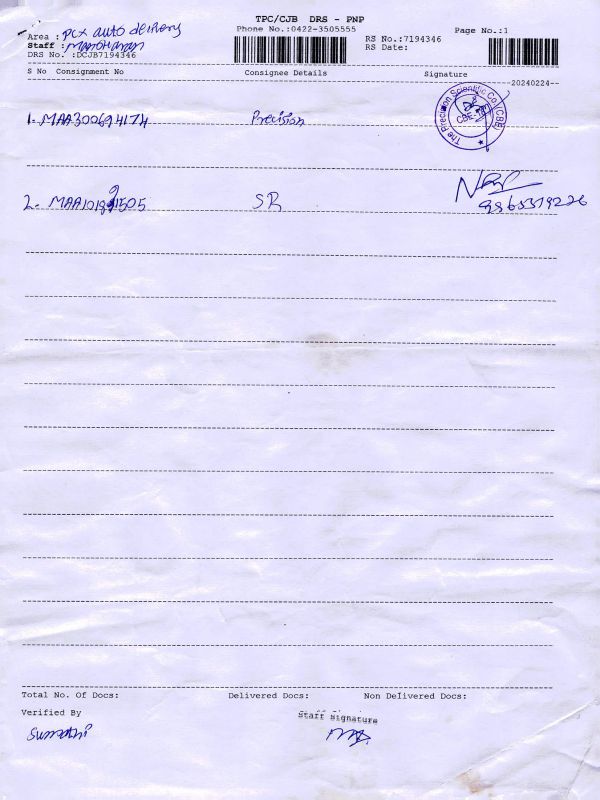 TPC/CJB DRS - PNP
Area : Pcx auto delivery
Phone No.:0422-3505555
Page No.:1
Staff : Manoharan
RS No.:7194346
RS Date:
DRS No. :DCJB7194346
S No Consignment No Consignee Details Signature
20240224
1. MAA300694174 Precision
The Precision Scientific Co (CBE)
2. MAA101891505 SR
9865379226
Total No. Of Docs: Delivered Docs: Non Delivered Docs:
Verified By
Staff Signature
Sumathi